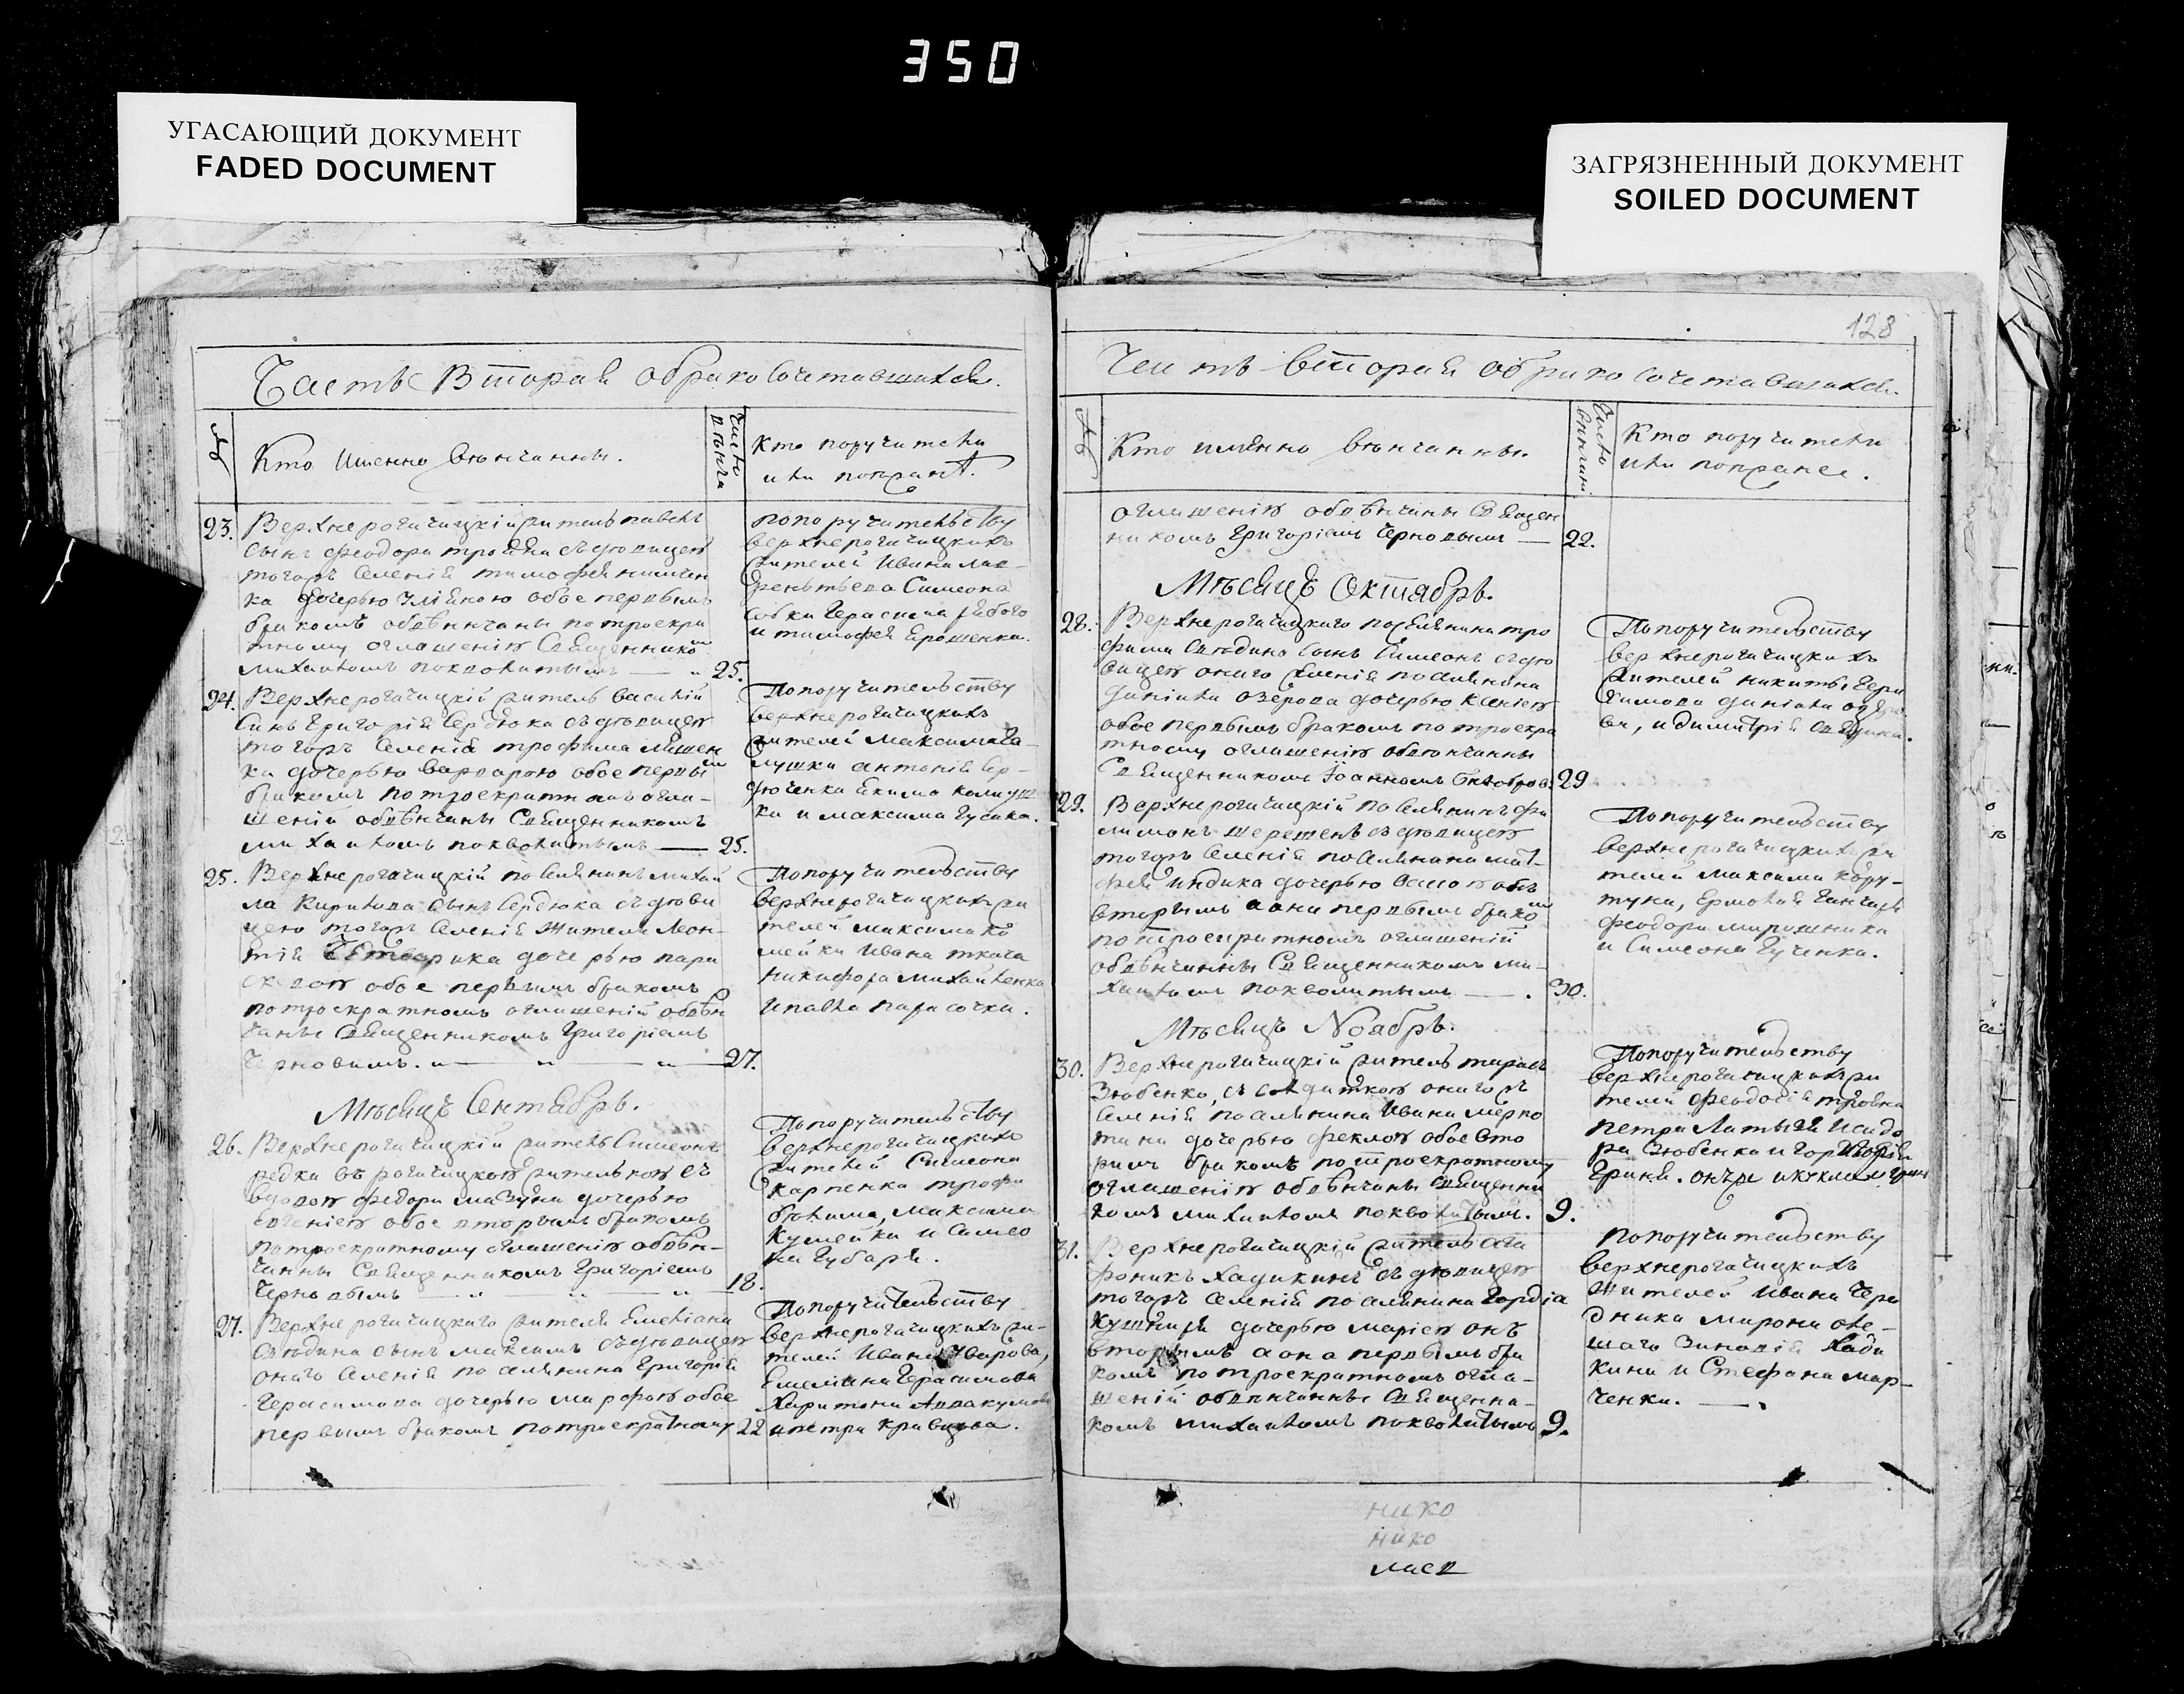 350
УГАСАЮЩИЙ ДОКУМЕНТ
FADED DOCUMENT
ЗАГРЯЗНЕННЫЙ ДОКУМЕНТ
SOILED DOCUMENT
Часть Вторая обракосочетавшихся.
№
Кто именно вѣнчанны.
Число
Кто поручители
или
23. Верхнерогачицкій житель павелъ
сынъ феодора съ дѣвицею
тогожъ селенія тимофея
ка дочерью обое первымъ
бракомъ обвѣнчаны по троекра
тному оглашенію Священникомъ
михаиломъ похвалитымъ — 25.
по поручительству
верхнерогачицкихъ
жителей Ивана
Симеона
Герасима рябого
и тимофея Ерошенка.
24. Верхнерогачицкій житель василій
Синъ Григорія Сердюка съ дѣвицею
тогожъ селенія трофима
ка дочерью варварою обое первымъ
бракомъ по троекратномъ огла-
шеніи обвѣнчаны Священникомъ
михаиломъ похвалитымъ — 25.
По поручительству
верхнерогачицкихъ
жителей Максима Га-
лушки антонія Сер-
дюченка якима
ка и максима Гусака.
25. Верхнерогачицкій поселянинъ михай
ла Кирилова сынъ Сердюка съ дѣви
цею тогожъ селенія жителя Леон-
тія дочерью пара
скевою обое первымъ бракомъ
по троекратномъ оглашеніи обвѣн
чаны Священникомъ Григоріемъ
Черновымъ. — 27.
По поручительству
верхнерогачицкихъ жи
телей максима ко
мейки Ивана ткача
никифора михайленка
и павла парасочки.
Мѣсяцъ Сентябрь.
26. Верхнерогачицкій житель Симеонъ
редка въ рогачицкою жителькою съ
вдовою федора мазуна дочерью
Евгеніею обое вторымъ бракомъ
по троекратному оглашенію обвѣн-
чанны Священникомъ Григоріемъ
Черновымъ — 18.
По поручительству
верхнерогачицкихъ
жителей Симеона
карпенка трофи
максима
кумейки и Симео
на Губаря.
27. Верхнерогачицкаго жителя Емеліана
сынъ максимъ съ дѣвицею
онаго селенія поселянина Григорія
Герасимова дочерью марфою обое
первымъ бракомъ по троекратному 22
По поручительству
верхнерогачицкихъ жи-
телей Ивана Уварова,
Емеліана Герасимова
Харитона Аввакумова
и петра кравцова.
128
Часть вторая обракосочетавшихся.
№
Кто именно вѣнчанны.
Число
Кто поручители
или
оглашенію обвѣнчаны Священ
никомъ Григоріемъ Черновымъ — 22.
Мѣсяцъ Октябрь.
28. Верхнерогачицкаго поселянина тро
фима сынъ Симеонъ съ дѣ
вицею онаго селенія поселянина
даніила озерова дочерью ксеніею
обое первымъ бракомъ по троекра
тному оглашенію обвѣнчанны
Священникомъ Іоанномъ 29
По поручительству
верхнерогачицкихъ
жителей никиты Гера
симова даніила озеро
ва, и димитрія
29. Верхнерогачицкій поселянинъ фи
лимонъ шерешень съ дѣвицею
тогожъ селенія поселянина мат-
фея индика дочерью онъ
вторымъ а она первымъ бракомъ
по троекратномъ оглашеніи
обвѣнчанны Священникомъ ми-
хаиломъ похвалитымъ — 30.
По поручительству
верхнерогачицкихъ жи
телей максима кору-
туна, Ермолая Ганчаря
феодора мирошника
и Симеона Гученка.
Мѣсяцъ Ноябрь.
30. Верхнерогачицкій житель тарасъ
Зюбенко, съ онагожъ
селенія поселянина Ивана
дочерью феклою обое вто
рымъ бракомъ по троекратному
оглашенію обвѣнчаны Священни
комъ михаиломъ похвалитымъ. 9.
По поручительству
верхнерогачицкихъ жи
телей феодосія
петра Исидо
ра Зюбенка и
31. Верхнерогачицкій житель ага
фоникъ Хадикинъ съ дѣвицею
тогожъ селенія поселянина Гордія
кушниря дочерью маріею онъ
вторымъ а она первымъ бра
комъ по троекратномъ огла-
шеніи обвѣнчанны Священни-
комъ михаиломъ похвалитымъ 9.
По поручительству
верхнерогачицкихъ
жителей Ивана Чере
дника мирона
Зиновія Хади
кина и Стефана мар-
ченка. —
нико
нико